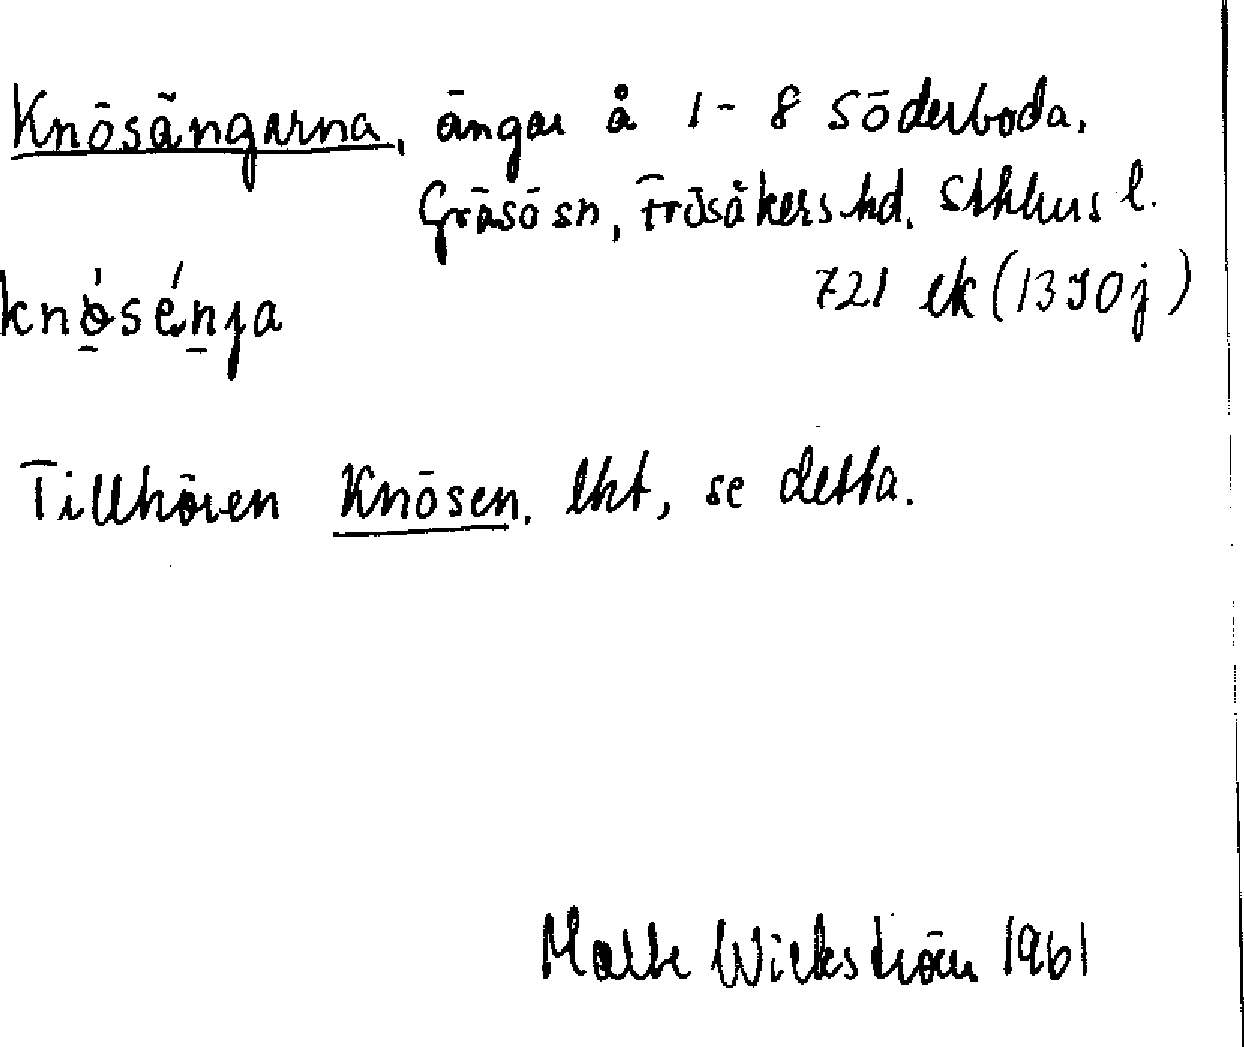 Knösängarna, ängar å 1-8 Söderboda,
Gräsö sn, Frösåkers hd. Sthlms l.
721 ek (13I0j)
knø̀sén̠ja
Tillhören Knösen, lht, se detta.
Malte Wickström 1961